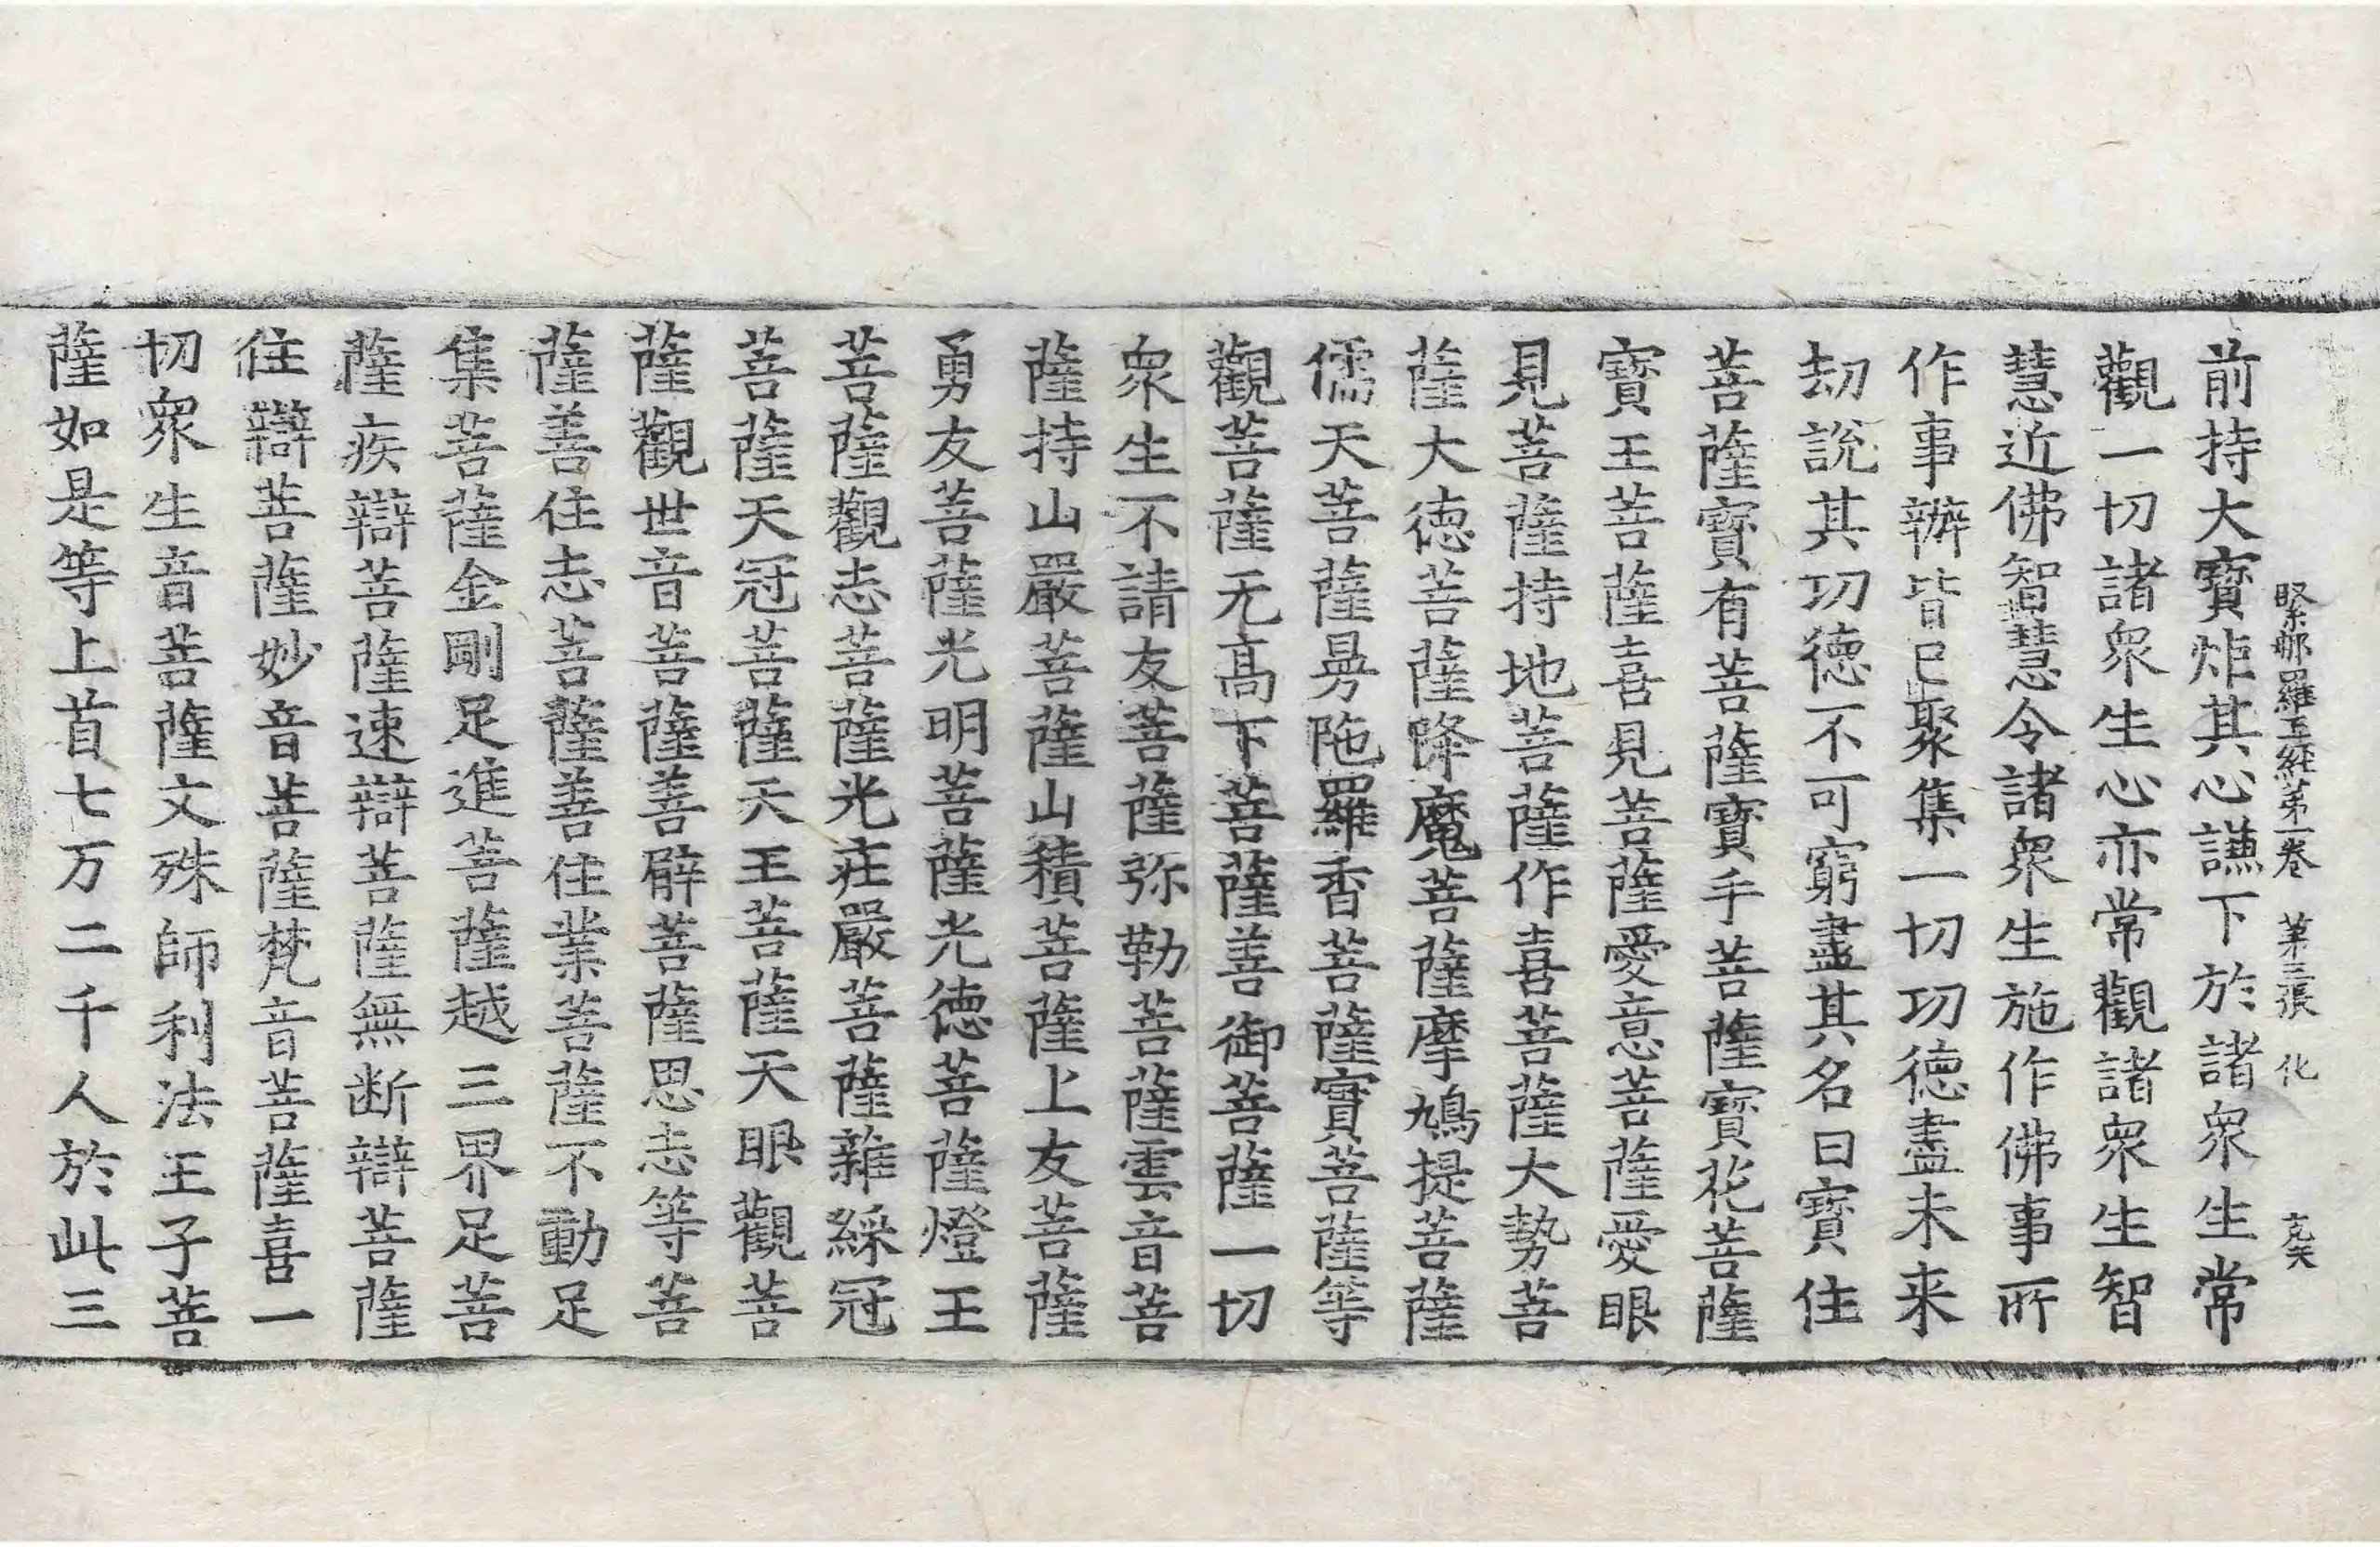 緊那羅王經第一卷 第三張 化
前持大寶炬其心謙下於諸衆生常
觀一切諸衆生心亦常觀諸衆生智
慧近佛智慧令諸衆生施作佛事所
作事辦皆已聚集一切功德盡未来
劫說其功德不可窮盡其名曰寶住
菩薩寶有菩薩寶手菩薩寶花菩薩
寶王菩薩喜見菩薩愛意菩薩愛眼
見菩薩持地菩薩作喜菩薩大勢菩
薩大德菩薩降魔菩薩摩鳩提菩薩
儒天菩薩㫄陁羅香菩薩實菩薩等
觀菩薩无高下菩薩善御菩薩一切
衆生不請友菩薩弥勒菩薩雲音菩
薩持山嚴菩薩山積菩薩上友菩薩
勇友菩薩光明菩薩光德菩薩燈王
菩薩觀志菩薩光莊嚴菩薩雜綵冠
菩薩天冠菩薩天王菩薩天眼觀菩
薩觀世音菩薩善臂菩薩思志等菩
薩善住志菩薩善住業菩薩不動足
集菩薩金剛足進菩薩越三界足菩
薩疾辯菩薩速辯菩薩無断辯菩薩
住辯菩薩妙音菩薩梵音菩薩喜一
切衆生音菩薩文殊師利法王子菩
薩如是等上首七万二千人於此三